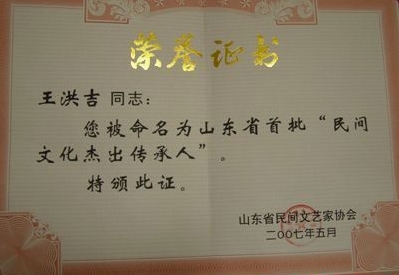 荣誉证书
王洪吉 同志：
您被命名为山东省首批“民间
文化杰出传承人”。
特颁此证。
山东省民间文艺家协会
二〇〇七年五月